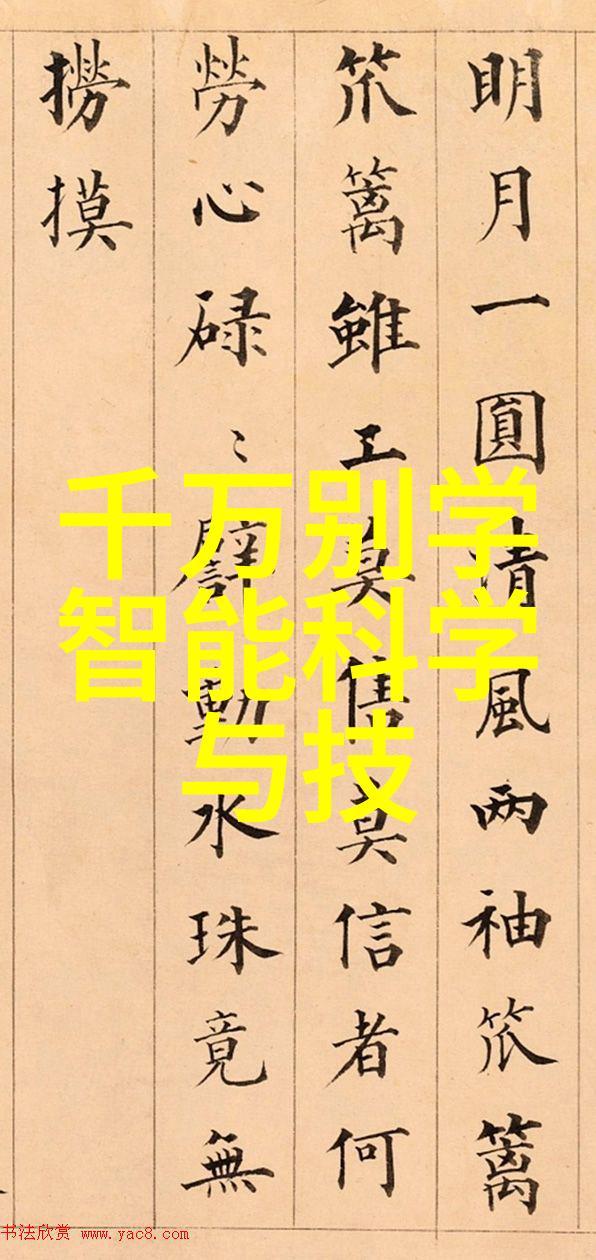 明月一圓清風两袖笊篱
笊篱雖工莫售莫信者何
勞心碌〻動水珠竟無
撈摸
千万别学
智能科学
与技
书法欣赏 www.yac8.com